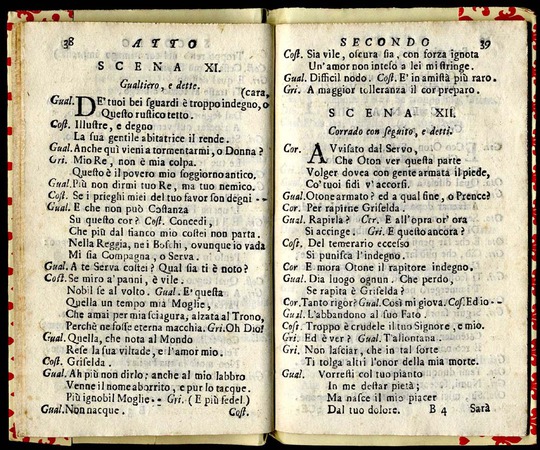 38 ATTO
SCENA XI.
Gualtiero, e dette.
(cara,
Gual. DE'tuoi bei sguardi è troppo indegno, o
Questo rustico tetto.
Cost. Illustre, e degno
La sua gentile abitatrice il rende.
Gual. Anche quì vieni a tormentarmi, o Donna?
Gri. Mio Re, non è mia colpa.
Questo è il povero mio soggiorno antico.
Gual. Più non dirmi tuo Re, ma tuo nemico.
Cost. Se i prieghi miei del tuo favor son degni --
Gual. E che non può Costanza
Su questo cor? Cost. Concedi,
Che più dal fianco mio costei non parta.
Nella Reggia, ne i Boschi, ovunque io vada
Mi sia Compagna, o Serva.
Gual. A te Serva costei? Qual sia ti è noto?
Cost. Se miro a' panni, è vile.
Nobil se al volto. Gual. E' questa
Quella un tempo mia Moglie,
Che amai per mia sciagura, alzata al Trono,
Perchè ne fosse eterna macchia. Gri. Oh Dio!
Gual. Quella, che nota al Mondo
Rese la sua viltade, e l'amor mio.
Cost. Griselda.
Gual. Ah più non dirlo; anche al mio labbro
Venne il nome aborrito, e pur lo tacque.
Più ignobil Moglie-- Gri. (E più fedel.)
Gual. Non nacque. Cost.
SECONDO 39
Cost. Sia vile, oscura sia, con forza ignota
Un'amor non inteso a lei mi stringe.
Gual. Difficil nodo. Cost. E' in amistà più raro.
Gri. A maggior tolleranza il cor preparo.
SCENA XII.
Corrado con seguito, e detti.
Cor. AVvisato dal Servo,
Che Oton ver questa parte
Volger dovea con gente armata il piede,
Co'tuoi fidi v'accorsi.
Gual. Otone armato? ed a qual fine, o Prence?
Cor. Per rapirne Griselda.
Gual. Rapirla? Cor. E all'opra or'ora
Si accinge. Gri. E questo ancora?
Cost. Del temerario eccesso
Si punisca l'indegno.
Cor E mora Otone il rapitore indegno.
Gual. Dia luogo ognun. Che perdo,
Se rapita è Griselda?
Cor. Tanto rigor? Gual. Così mi giova. Cos. Ed io --
Gual. L'abbandono al suo Fato.
Cost. Troppo è crudele il tuo Signore, e mio.
Gri. Ed è ver? Gual. T'allontana.
Gri. Non lasciar, che in tal sorte
Ti tolga altri l'onor della mia morte.
Gual. Vorresti col tuo pianto
In me destar pietà;
Ma nasce il mio piacer
Dal tuo dolore. B 4 Sarà